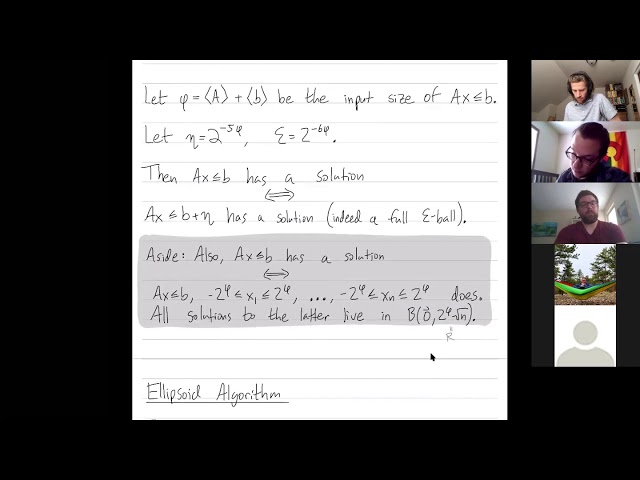 Let φ = ⟨A⟩ + ⟨b⟩ be the input size of Ax ≤ b.
Let η = 2^{-5φ}, Ɛ = 2^{-6φ}.
Then Ax ≤ b has a solution
⟺
Ax ≤ b + η has a solution (indeed a full Ɛ-ball).
Aside: Also, Ax ≤ b has a solution
⟺
Ax ≤ b, -2^φ ≤ x₁ ≤ 2^φ, ..., -2^φ ≤ xₙ ≤ 2^φ does.
All solutions to the latter live in B(0⃗, 2^φ √n).
R
Ellipsoid Algorithm